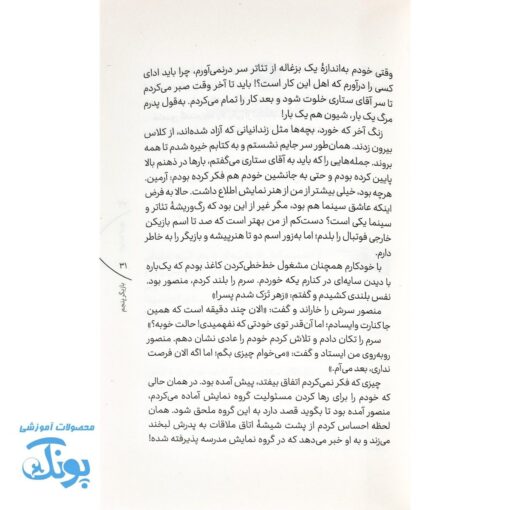 وقتی خودم به‌اندازهٔ یک بزغاله از تئاتر سر درنمی‌آورم، چرا باید ادای
کسی را درآورم که اهل این کار است؟! باید تا آخر وقت صبر می‌کردم
تا سر آقای ستاری خلوت شود و بعد کار را تمام می‌کردم. به‌قول پدرم
مرگ یک بار، شیون هم یک بار!
زنگ آخر که خورد، بچه‌ها مثل زندانیانی که آزاد شده‌اند، از کلاس
بیرون زدند. همان‌طور سر جایم نشستم و به کتابم خیره شدم تا همه
بروند. جمله‌هایی را که باید به آقای ستاری می‌گفتم، بارها در ذهنم بالا
پایین کرده بودم و حتی به جانشین خودم هم فکر کرده بودم: آرمین.
هرچه بود، خیلی بیشتر از من از هنر نمایش اطلاع داشت. حالا به فرض
اینکه عاشق سینما هم بود، مگر غیر از این بود که رگ‌وریشهٔ تئاتر و
سینما یکی است؟ دست‌کم از من بهتر است که صد تا اسم بازیکن
خارجی فوتبال را بلدم؛ اما به‌زور اسم دو تا هنرپیشه و بازیگر را به خاطر
دارم.
با خودکارم همچنان مشغول خط‌خطی‌کردن کاغذ بودم که یک‌باره
با دیدن سایه‌ای در کنارم یکه خوردم. سرم را بلند کردم، منصور بود.
نفس بلندی کشیدم و گفتم: «زهر تَرَک شدم پسر!»
منصور سرش را خاراند و گفت: «الان چند دقیقه است که همین
جا کنارت وایسادم؛ اما آن‌قدر توی خودتی که نفهمیدی! حالت خوبه؟»
سرم را تکان دادم و تلاش کردم خودم را عادی نشان دهم. منصور
روبه‌روی من ایستاد و گفت: «می‌خوام چیزی بگم؛ اما اگه الان فرصت
نداری، بعد می‌آم.»
چیزی که فکر نمی‌کردم اتفاق بیفتد، پیش آمده بود. در همان حالی
که خودم را برای رها کردن مسئولیت گروه نمایش آماده می‌کردم،
منصور آمده بود تا بگوید قصد دارد به این گروه ملحق شود. همان
لحظه احساس کردم از پشت شیشهٔ اتاق ملاقات به پدرش لبخند
می‌زند و به او خبر می‌دهد که در گروه نمایش مدرسه پذیرفته شده!
۳۱
بازیگر پنجم
محصولات آموزشی
پونک